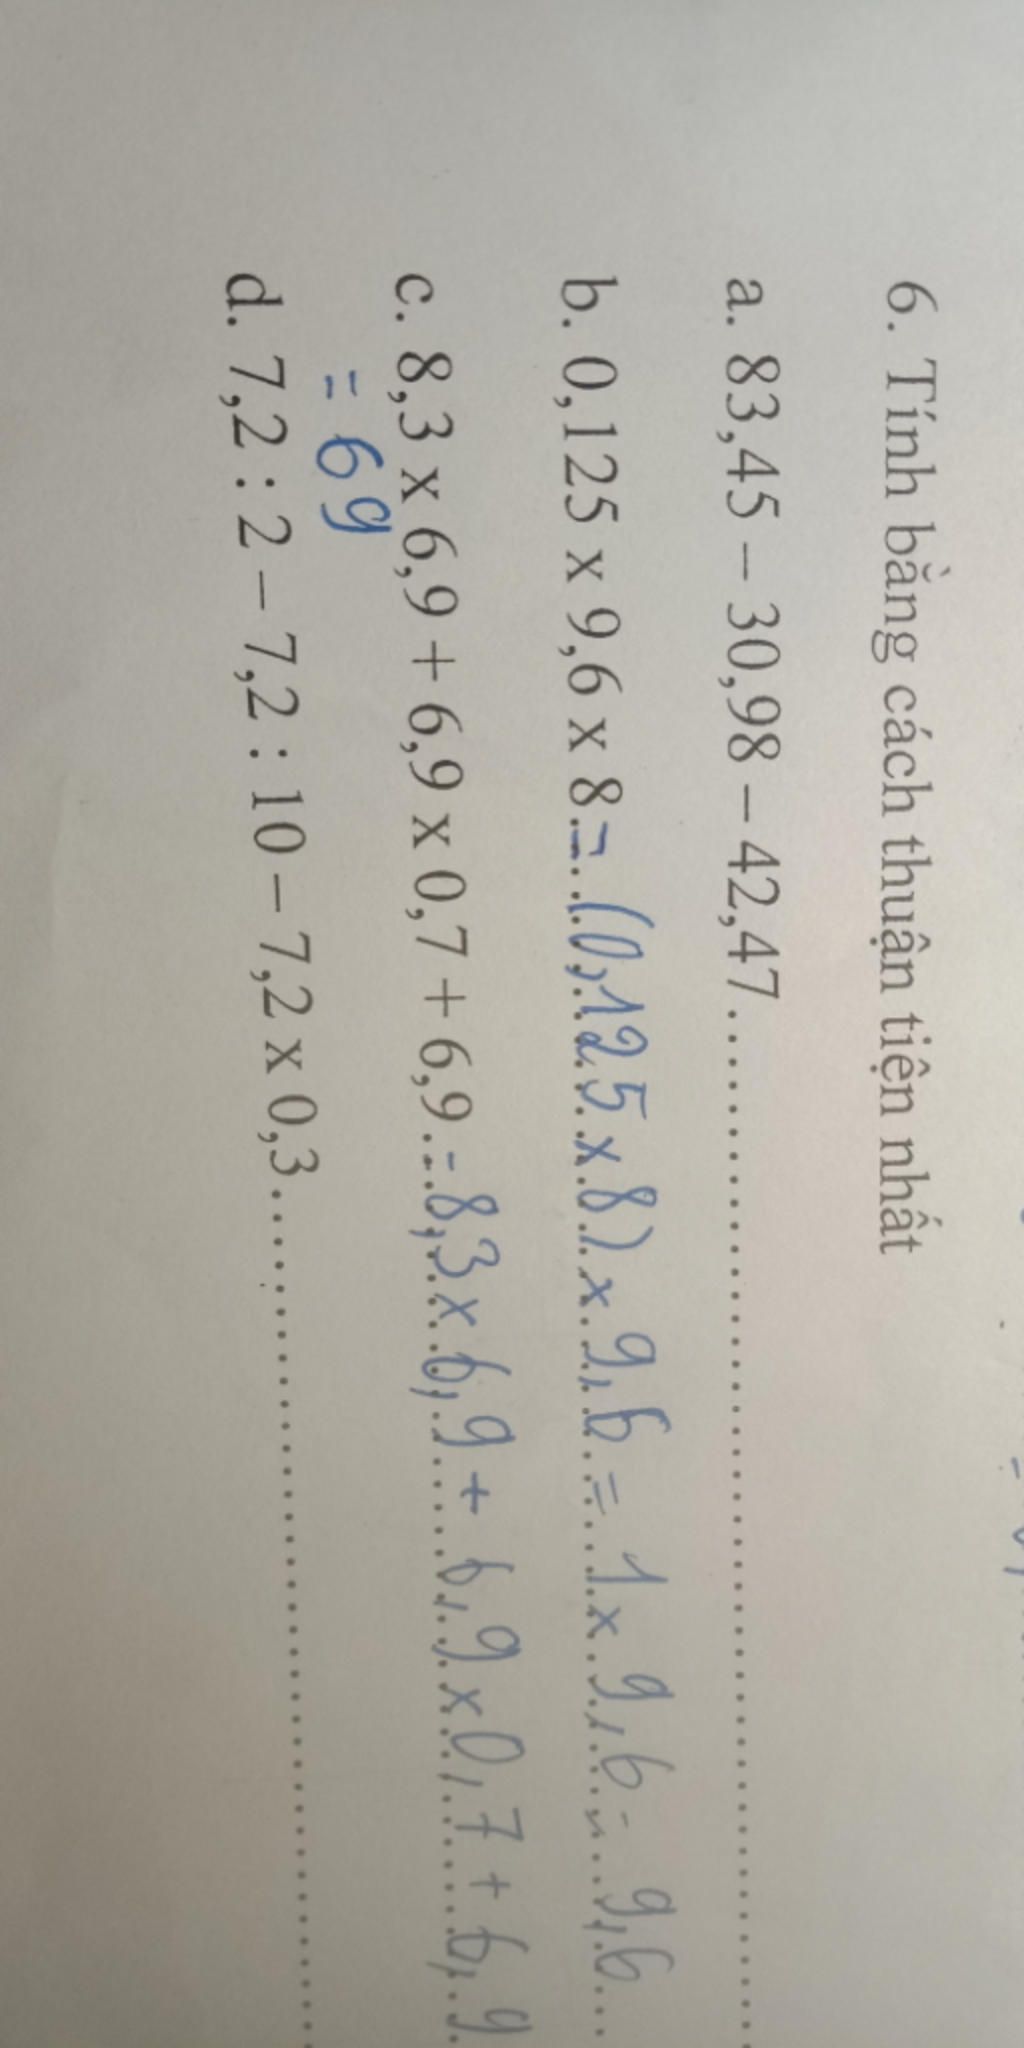 6. Tính bằng cách thuận tiện nhất
a. 83,45 – 30,98 – 42,47..........
b. 0,125 x 9,6 x 8 = (0,125 x 8) x 9,6 = 1 x 9,6 = 9,6
c. 8,3 x 6,9 + 6,9 x 0,7 + 6,9 = 8,3 x 6,9 + 6,9 x 0,7 + 6,9
= 69
d. 7,2 : 2 – 7,2 : 10 – 7,2 x 0,3..........